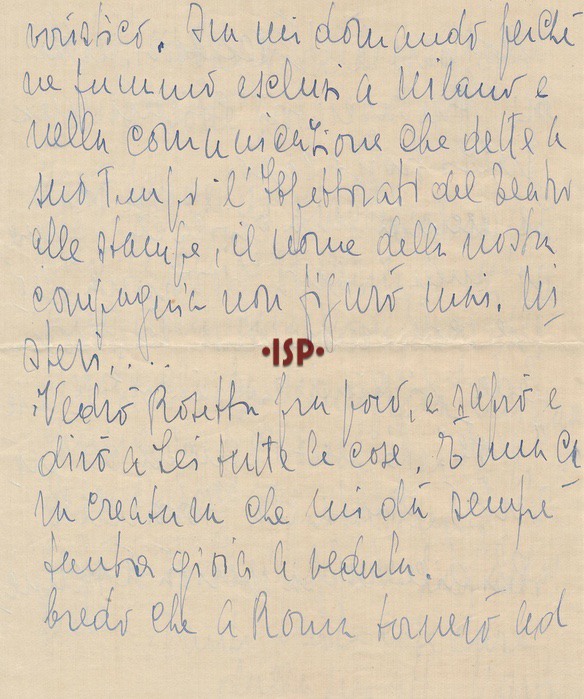 voristico. Ora mi domando perché
ne fummo esclusi a Milano e
nella comunicazione che dette a
suo tempo l'Ispettorato del Teatro
alle stampe, il nome della nostra
compagnia non figurò mai. Mi
steri....
•ISP•
Vedrò Rosetta fra poco, e saprò e
dirò a Lei tutte le cose. È una ca
ra creatura che mi dà sempre
tanta gioia a vederla.
Credo che a Roma tornerò ad